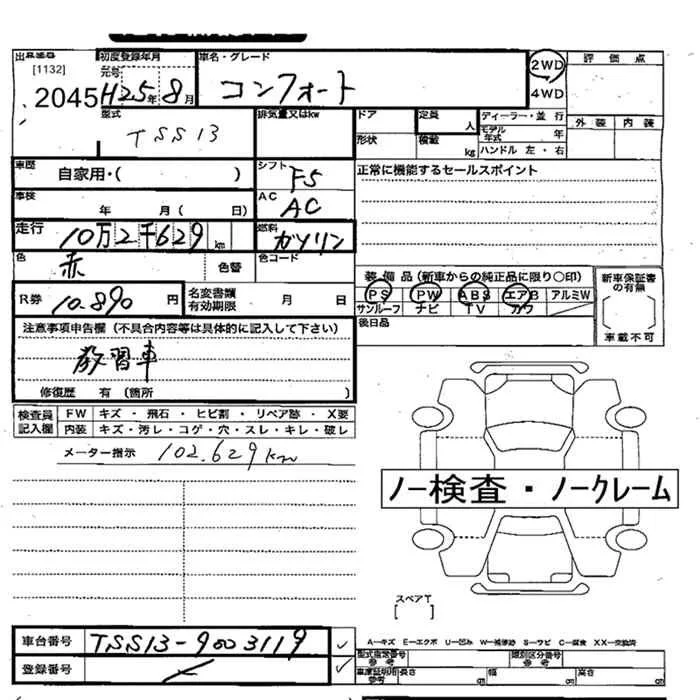 出品番号 初度登録年月 車名・グレード 評価点
[1132] 元号 2WD
2045 H25年8月 コンフォート 4WD
外装 内装
型式 排気量又はkw ドア 定員 人 ディーラー・並行
TSS13 形状 積載 kg モデル年式 年
ハンドル 左・右
車歴 シフト 正常に機能するセールスポイント
自家用・( ) F5
車検 AC
年 月( 日) AC
走行 10万2千629km 燃料 ガソリン
色 赤 色替 色コード
装備品(新車からの純正品に限り〇印) 新車保証書の有無
R券 10.890円 名変書類有効期限 月 日 PS PW ABS エアB アルミW
サンルーフ ナビ TV カワ
後日品 車載不可
注意事項申告欄(不具合内容等は具体的に記入して下さい)
教習車
修復歴 有(箇所 )
検査員記入欄 FW キズ・飛石・ヒビ割・リペア跡・X要
内装 キズ・汚レ・コゲ・穴・スレ・キレ・破レ
メーター指示 102.629km
ノー検査・ノークレーム
スペアT
[ ]
車台番号 TSS13-9003119
A-キズ E-エクボ U-凹み W-補修跡 S-サビ C-腐食 XX-交換済
登録番号 型式指定番号参考 類別区分番号参考
車庫証明用参考 長さ cm 幅 cm 高さ cm